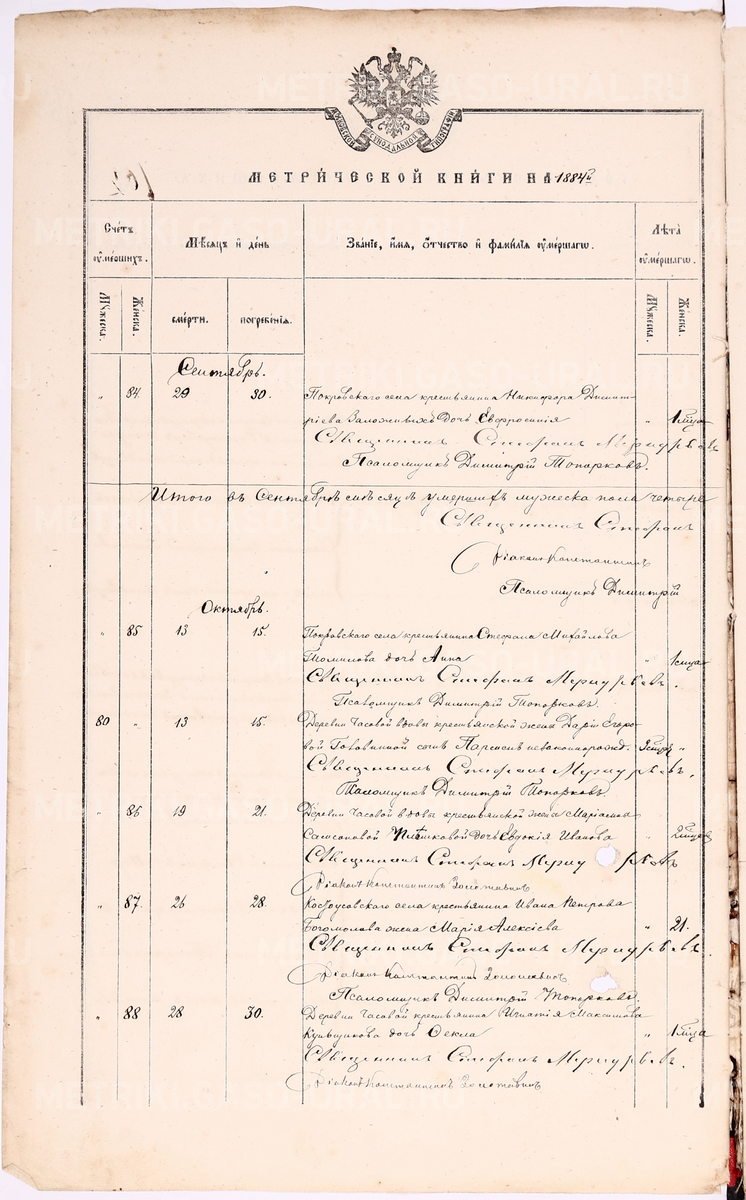 МОСКОВСКОЙ СѴНОДАЛЬНОЙ ТИПОГРАФІИ
МЕТРИ́ЧЕСКОЙ КНИ́ГИ НА 1884
Сче́тъ ᲂу҆ме́ршихъ.
Мѣ́сяцъ и҆ де́нь
Зва́ніе, и҆́мя, ѻ҆́тчество и҆ фами́лія ᲂу҆ме́ршагѡ.
Лѣ́та ᲂу҆ме́ршагѡ.
Мꙋ́жеска. Же́нска. сме́рти. погребе́нія. Мꙋ́жеска. Же́нска.
Сентябрь.
" 84 29 30. Покровскаго села крестьянина Никифора Димит-
ріева Заложныхъ дочь Евфросинія "
Священникъ Стефанъ Меркурьевъ
Псаломщикъ Димитрій Топорковъ.
Итого въ Сентябрѣ мѣсяцѣ умершихъ мужеска пола четыре
Священникъ Стефанъ
Діаконъ Константинъ
Псаломщикъ Димитрій
Октябрь.
" 85 13 15. Покровскаго села крестьянина Стефана Михайлова
Томилова дочь Анна "
Священникъ Стефанъ Меркурьевъ.
Псаломщикъ Димитрій Топорковъ.
80 " 13 15. Деревни Часовой вдовы крестьянской жены Даріи Егоро-
вой Головиной сынъ незаконнорожд. "
Священникъ Стефанъ Меркурьевъ.
Псаломщикъ Димитрій Топорковъ
" 86 19 21. Деревни Часовой вдовы крестьянской жены Маріанны
Самсоновой дочь Евдокія Иванова "
Священникъ Стефанъ Меркурьевъ
Діаконъ Константинъ Золотавинъ
" 87. 26 28. Костоусовскаго села крестьянина Ивана Петрова
Богомолова жена Марія Алексіева " 21.
Священникъ Стефанъ Меркурьевъ.
Діаконъ Константинъ Золотавинъ
Псаломщикъ Димитрій Топорковъ
" 88 28 30. Деревни Часовой крестьянина Игнатія Максимова
дочь Ѳекла "
Священникъ Стефанъ Меркурьевъ.
Діаконъ Константинъ Золотавинъ